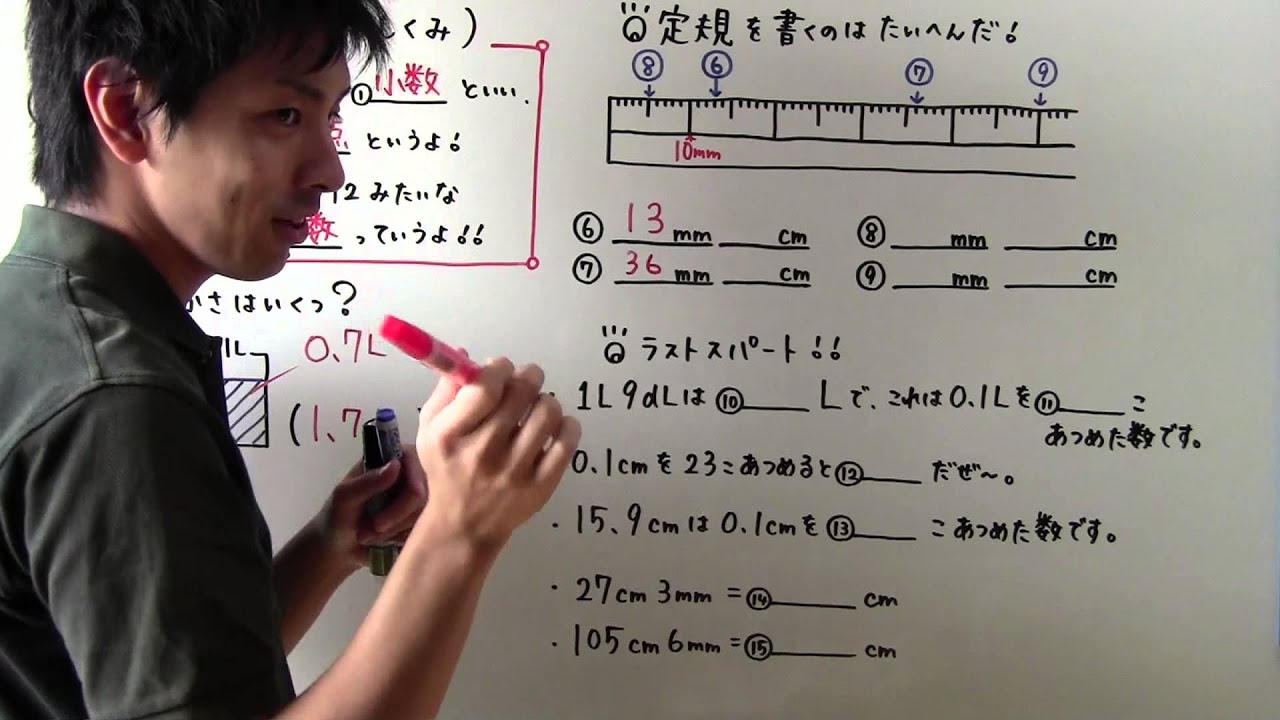 くみ)
①小数 といい.
点 というよ!
12みたいな
数 っていうよ!!
かさはいくつ?
1L
0.7L
(1.7
定規を書くのは たいへんだ!
⑧ ⑥ ⑦ ⑨
10mm
⑥ 13 mm cm ⑧ mm cm
⑦ 36 mm cm ⑨ mm cm
ラストスパート!!
・1L9dLは ⑩ Lで、これは0.1Lを⑪ こ
あつめた数です。
0.1cmを23こあつめると⑫ だぜ〜。
・15.9cmは0.1cmを⑬ こあつめた数です。
・27cm3mm=⑭ cm
・105cm6mm=⑮ cm